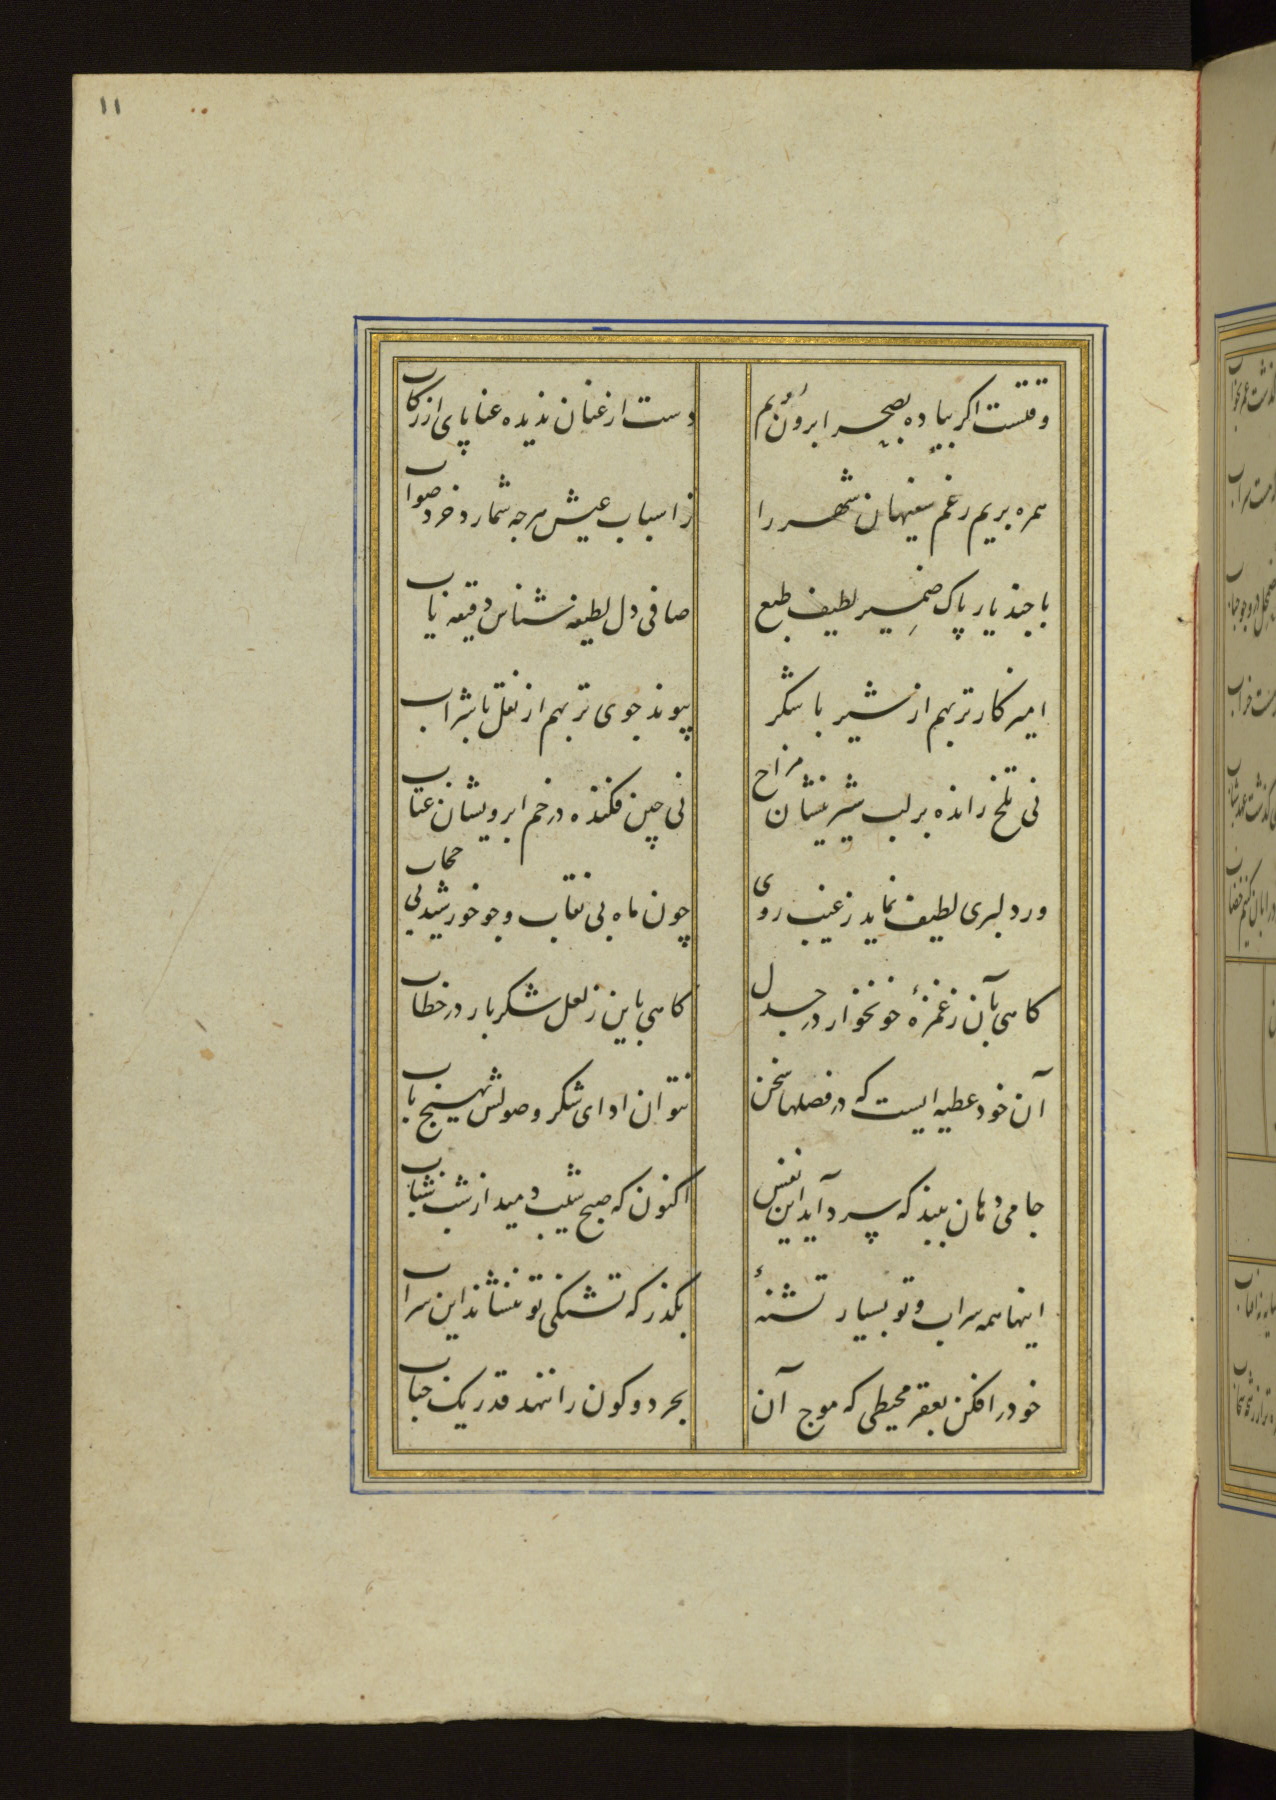 ۱۱
وقتست اگر پیاده بصحرا برون رویم
دست از عنان ندیده عنا پای از رکاب
همره بریم رغم سفیهان شهر را
ز اسباب عیش هرچه شمارد خرد صواب
با چند یار پاک ضمیر لطیف طبع
صافی دل لطیفه شناس دقیقه یاب
امیزکارتر بهم از شیر با شکر
پیوند جوی تر بهم از نقل با شراب
نی تلخ رانده بر لب شیرینشان مزاح
نی چین فکنده در خم ابرویشان عتاب
ور دلبری لطیف نماید ز غیب روی
چون ماه بی نقاب و چو خورشید بی حجاب
کاهی بآن ز غمزهٔ خونخوار در جدل
کاهی باین ز لعل شکربار در خطاب
آن خود عطیه ایست که در فصلها سخن
نتوان ادای شکر وصولش بهیچ باب
جامی دهان ببند که سرد آید این نفس
اکنون که صبح شیب دمید از شب شباب
اینها همه سراب و تو بسیار تشنهٔ
بگذر که تشنکی تو ننشاند این سراب
خود را فکن بقعر محیطی که موج آن
بحر دو کون را ننهد قدر یک حباب